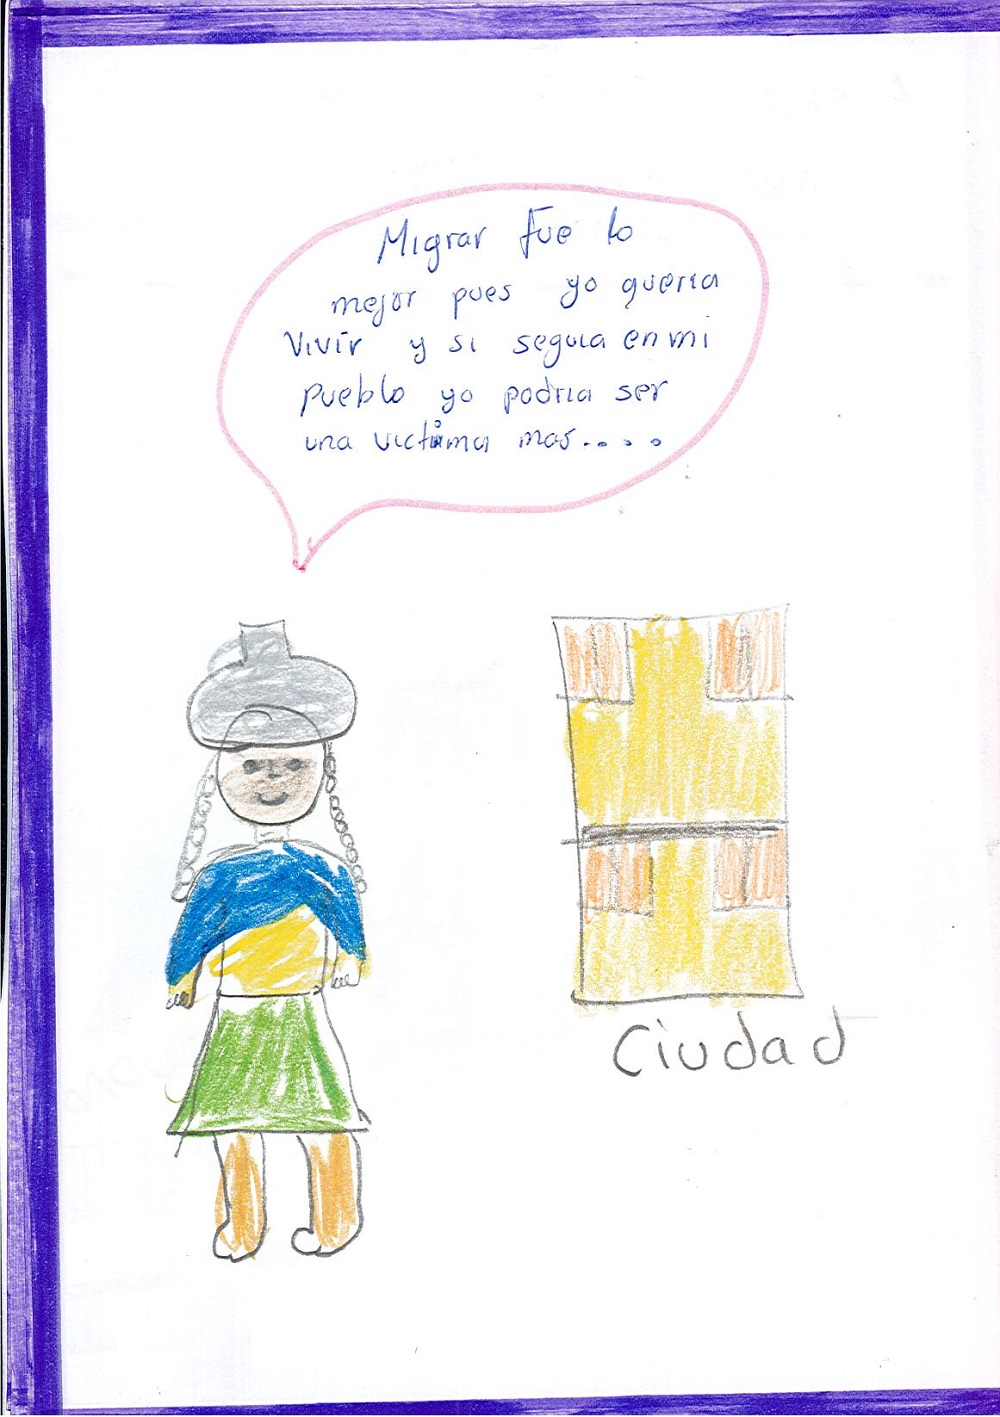 Migrar fue lo
mejor pues yo queria
vivir y si seguia en mi
pueblo yo podria ser
una victima mas....
Ciudad